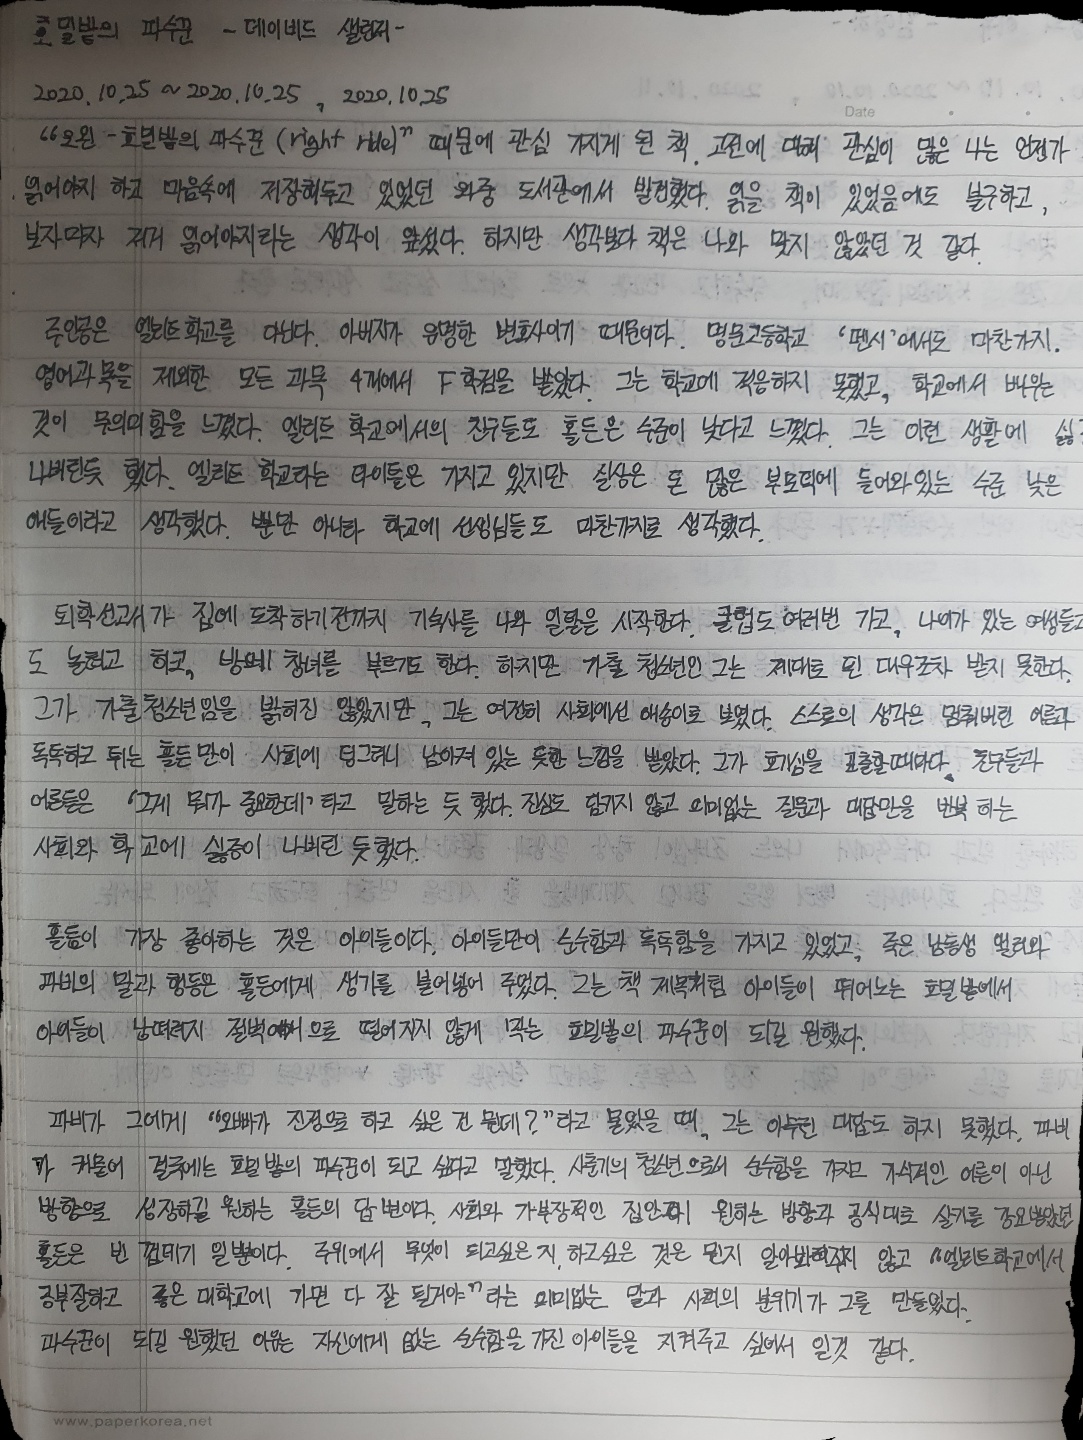 호밀밭의 파수꾼 - 데이비드 샐린저-
2020.10.25 ~ 2020.10.25 , 2020.10.25
Date
"오왼 - 호밀밭의 파수꾼 (right rye)" 때문에 관심 가지게 된 책. 고전에 대해 관심이 많은 나는 언젠가
읽어야지 하고 마음속에 저장해두고 있었던 와중 도서관에서 발견했다. 읽을 책이 있었음에도 불구하고,
보자마자 저거 읽어야지라는 생각이 앞섰다. 하지만 생각보다 책은 나와 맞지 않았던 것 같다.
주인공은 엘리트학교를 다닌다. 아버지가 유명한 변호사이기 때문이다. 명문고등학교 '펜시'에서도 마찬가지.
영어과목을 제외한 모든 과목 4개에서 F학점을 받았다. 그는 학교에 적응하지 못했고, 학교에서 배우는
것이 무의미함을 느꼈다. 엘리트 학교에서의 친구들도 홀든은 수준이 낮다고 느꼈다. 그는 이런 생활에
나버린듯 했다. 엘리트 학교라는 타이틀은 가지고 있지만 실상은 돈 많은 부모덕에 들어와있는 수준 낮은
애들이라고 생각했다. 뿐만 아니라 학교에 선생님들도 마찬가지로 생각했다.
퇴학선고서가 집에 도착하기전까지 기숙사를 나와 일탈을 시작한다. 클럽도 여러번 가고, 나이가 있는 여성들과
도 놀려고 하고, 방으로 창녀를 부르기도 한다. 하지만 가출 청소년인 그는 제대로 된 대우조차 받지 못한다.
그가 가출청소년임을 밝히진 않았지만, 그는 여전히 사회에선 애송이로 보였다. 스스로의 생각은 멈춰버린 어른과
독특하고 튀는 홀든만이 사회에 덩그러니 남아져 있는 듯한 느낌을 받았다. 그가 호기심을 표출할때마다, 친구들과
어른들은 '그게 뭐가 중요한데'라고 말하는 듯 했다. 진심도 담기지 않고 의미없는 질문과 대답만을 반복 하는
사회와 학교에 싫증이 나버린 듯했다.
홀든이 가장 좋아하는 것은 아이들이다. 아이들만이 순수함과 독특함을 가지고 있었고, 죽은 남동생 앨리와
피비의 말과 행동은 홀든에게 생기를 불어넣어 주었다. 그는 책 제목처럼 아이들이 뛰어노는 호밀밭에서
아이들이 낭떠러지 절벽 으로 떨어지지 않게 막는 호밀밭의 파수꾼이 되길 원했다.
피비가 그에게 "오빠가 진정으로 하고 싶은 건 뭔데?"라고 물었을 때, 그는 아무런 대답도 하지 못했다. 피비
가 캐물어 결국에는 호밀밭의 파수꾼이 되고 싶다고 말했다. 사춘기의 청소년으로서 순수함을 가지고 가식적인 어른이 아닌
방향으로 성장하길 원하는 홀든의 답변이다. 사회와 가부장적인 집안 이 원하는 방향과 공식대로 살기를 강요받았던
홀든은 빈 껍데기 일뿐이다. 주위에서 무엇이 되고싶은지, 하고싶은 것은 뭔지 알아 않고 "엘리트학교에서
공부잘하고 좋은 대학교에 가면 다 잘 될거야"라는 의미없는 말과 사회의 분위기가 그를 만들었다.
파수꾼이 되길 원했던 이유는 자신에게 없는 순수함을 가진 아이들을 지켜주고 싶어서 일것 같다.
www.paperkorea.net